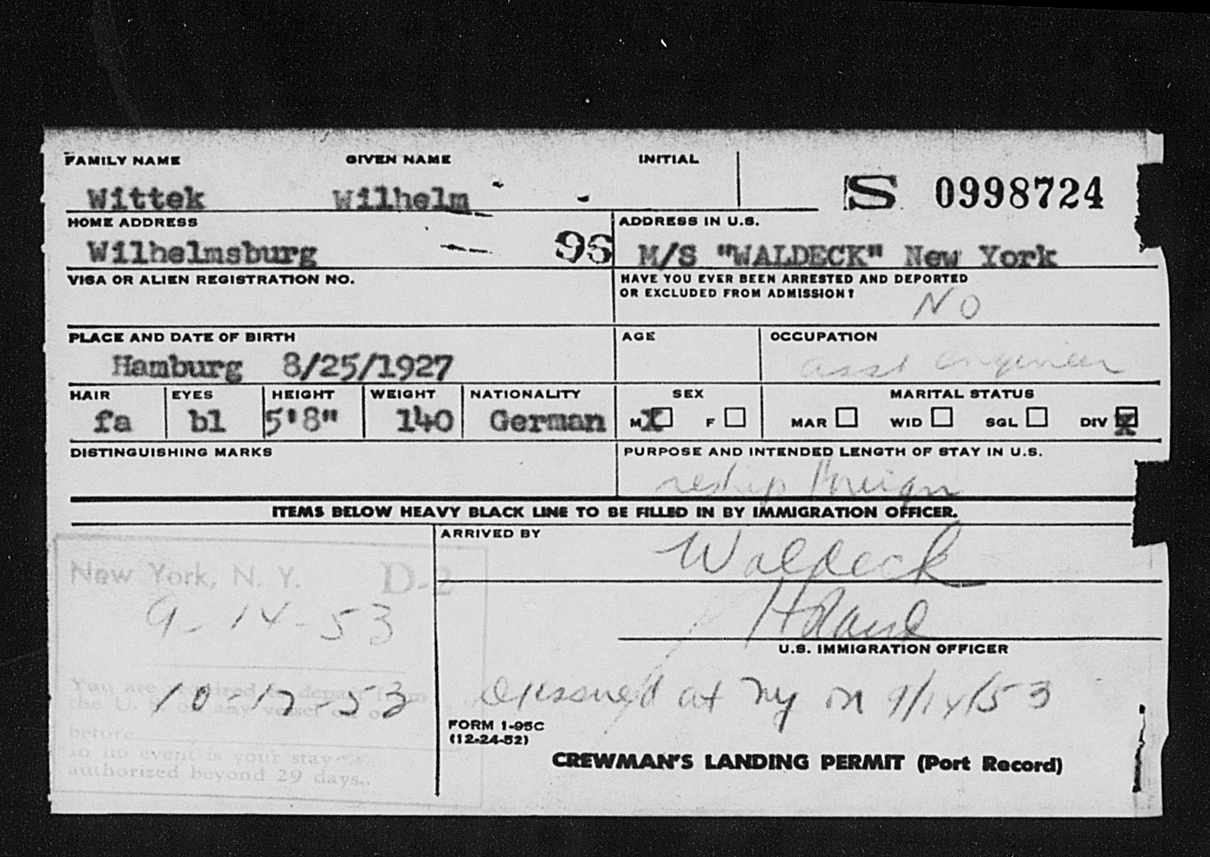 FAMILY NAME GIVEN NAME INITIAL
Wittek Wilhelm - S 0998724
HOME ADDRESS ADDRESS IN U.S.
Wilhelmsburg 96 M/S "WALDECK" New York
VISA OR ALIEN REGISTRATION NO. HAVE YOU EVER BEEN ARRESTED AND DEPORTED
OR EXCLUDED FROM ADMISSION? NO
PLACE AND DATE OF BIRTH AGE OCCUPATION
Hamburg 8/25/1927 asst engineer
HAIR EYES HEIGHT WEIGHT NATIONALITY SEX MARITAL STATUS
fa bl 5'8" 140 German M X F MAR WID SGL DIV X
DISTINGUISHING MARKS PURPOSE AND INTENDED LENGTH OF STAY IN U.S.
reship foreign
ITEMS BELOW HEAVY BLACK LINE TO BE FILLED IN BY IMMIGRATION OFFICER.
ARRIVED BY
Waldeck
New York, N. Y. D-2
9-14-53
U.S. IMMIGRATION OFFICER
You are required to depart from
10-12-53
the U. S. on any vessel on or
before
in no event is your stay
authorized beyond 29 days.
at ny on 9/14/53
FORM 1-95C
(12-24-52)
CREWMAN'S LANDING PERMIT (Port Record)